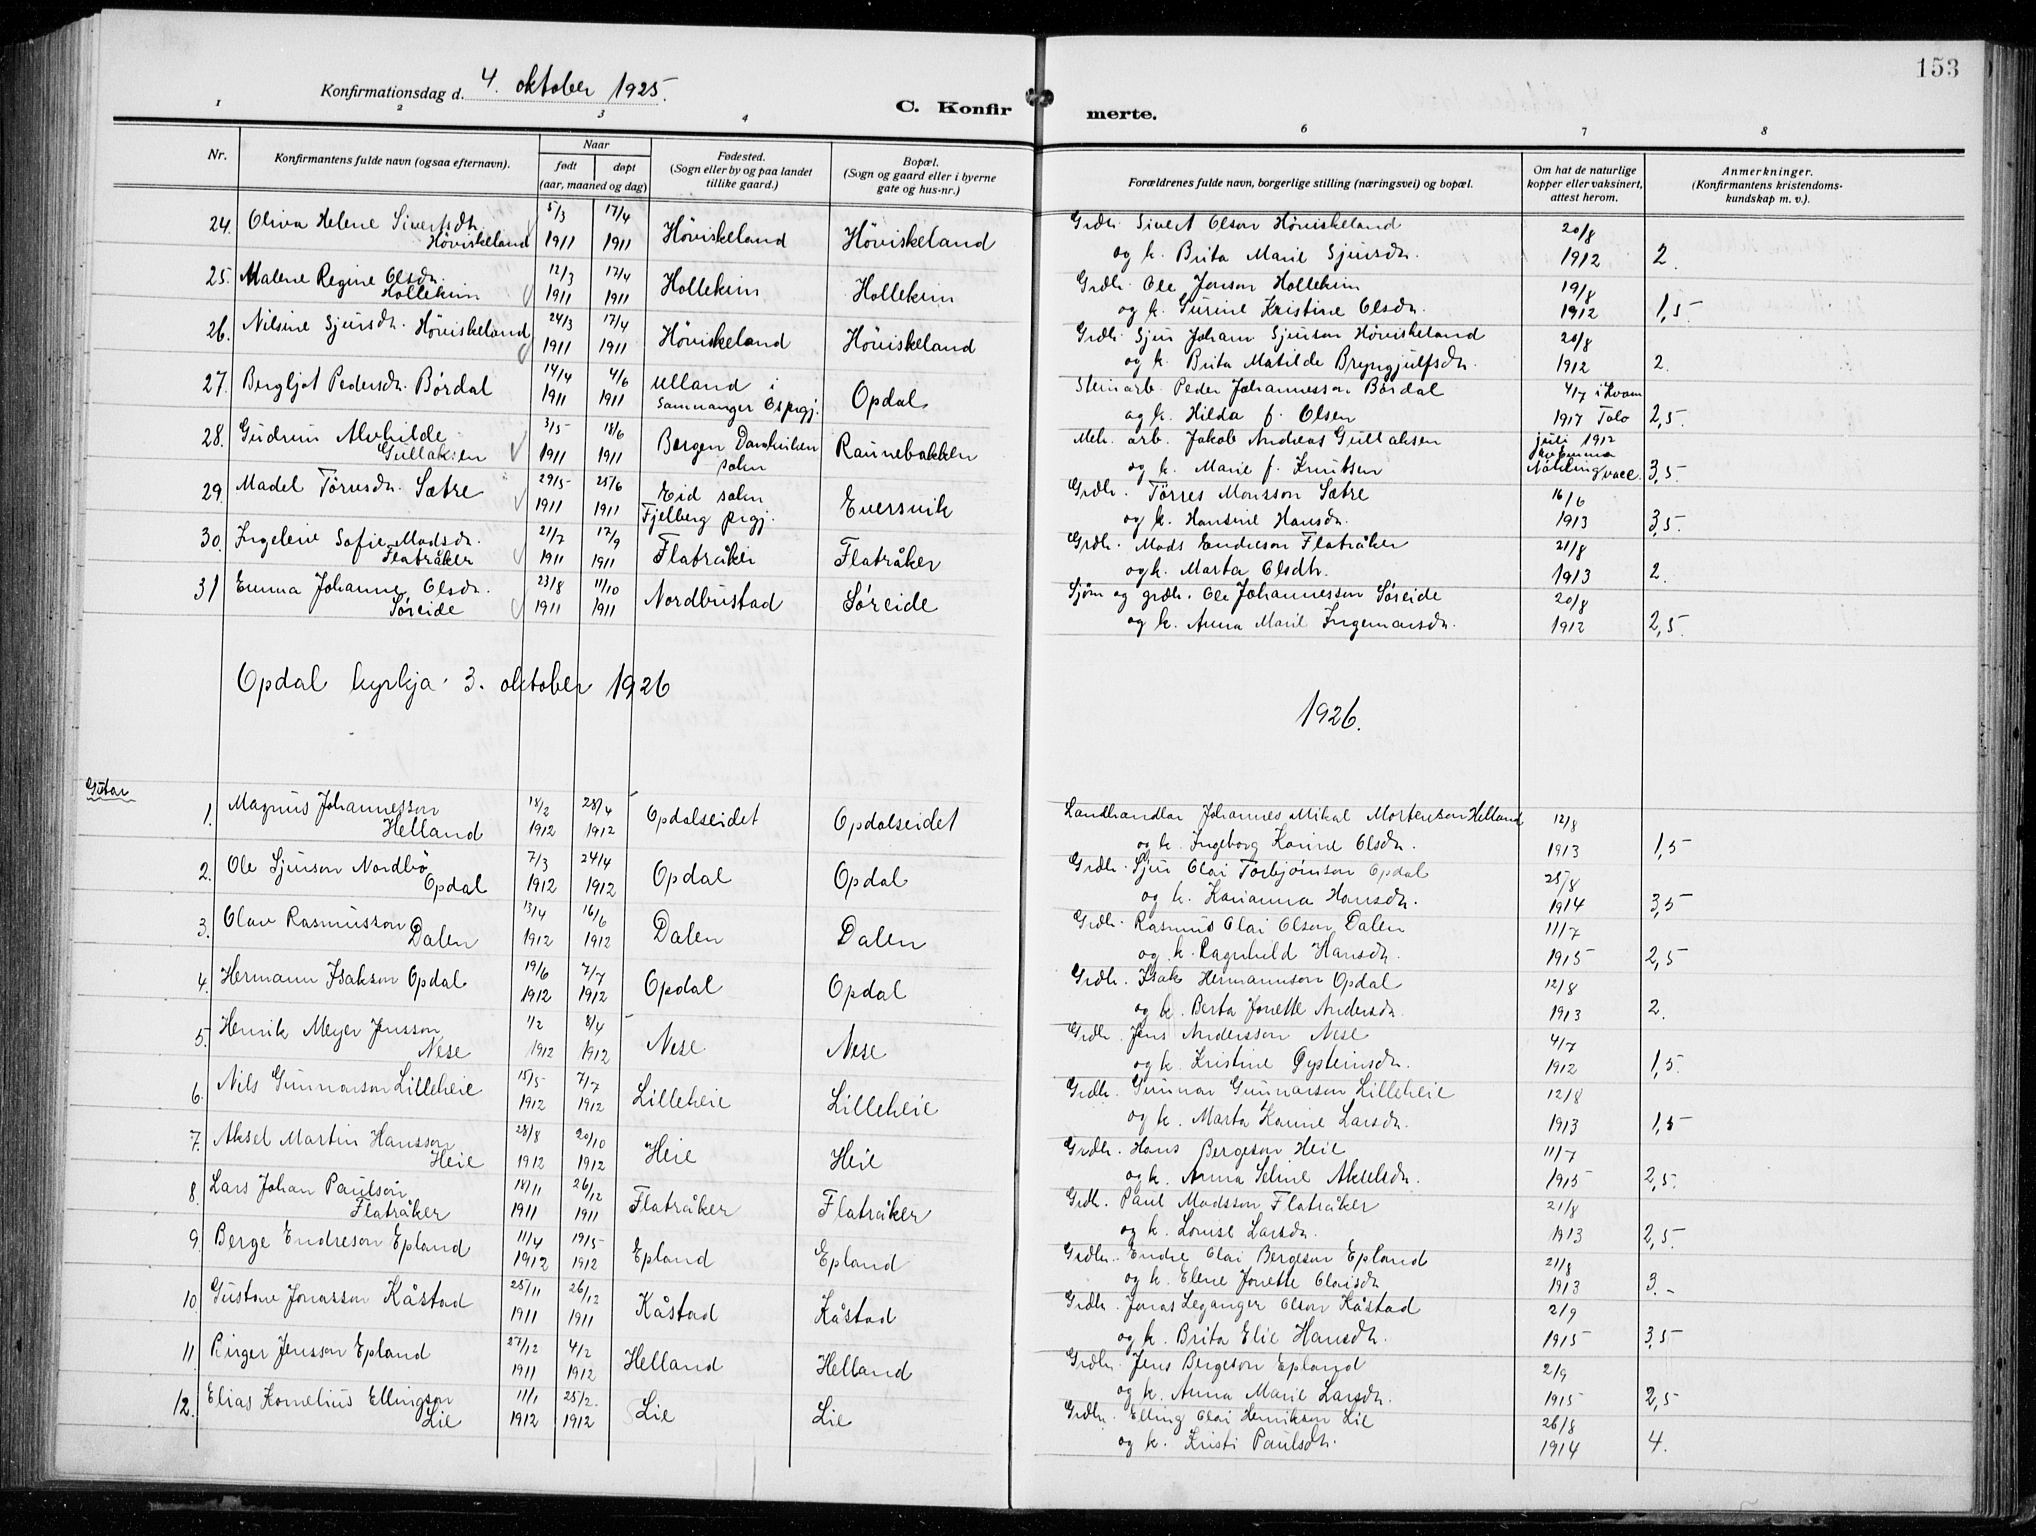 153
Konfirmationsdag d. 4. oktober 1925.
C. Konfirmerte.
1 2 3 4 6 7 8
Nr.
Konfirmantens fulde navn (ogsaa efternavn).
Naar
født
døpt
(aar, maaned og dag)
Fødested.
(Sogn eller by og paa landet
tillike gaard.)
Bopæl.
(Sogn og gaard eller i byerne
gate og hus-nr.)
Forældrenes fulde navn, borgerlige stilling (næringsvei) og bopæl.
Om hat de naturlige
kopper eller vaksinert,
attest herom.
Anmerkninger.
(Konfirmantens kristendoms-
kundskap m. v.).
24. Oliva Helene Sivertsdtr. Høviskeland 5/3 1911 17/4 1911 Høviskeland Høviskeland Grdbr. Sivert Olson Høviskeland 20/8
og k. Brita Marie Sjursdtr. 1912 2.
25. Malene Regine Olsdtr. Hollekim 12/3 1911 17/4 1911 Hollekim Hollekim Grdbr. Ole Jonson Hollekim 19/8
og k. Gurine Kristine Olsdtr. 1912 1,5
26. Nilsine Sjursdtr. Høviskeland 24/3 1911 17/4 1911 Høviskeland Høviskeland Grdbr. Sjur Johan Sjurson Høviskeland 20/8
og k. Brita Matilde Bryngjulfsdtr. 1912 2.
27. Bergljot Pedersdtr. Børdal 14/4 1911 4/6 1911 Ulland i Samnanger Os prgj. Opdal Steinarb. Peder Johannesson Børdal 4/7 i Kvam
og k. Hilda f. Olsen 1917 2,5
28. Gudrun Alvhilde Gullaksen 3/5 1911 18/6 1911 Bergen Raunebakken Mek. arb. Jakob Andreas Gullaksen juli 1912
og k. Marie f. Knutsen 3,5
29. Madel Tørresdtr. Sætre 29/5 1911 25/6 1911 Eid sokn Fjelberg prgj. Eversvik Grdbr. Tørres Monsson Sætre 16/6
og k. Hansine Hansdtr. 1913 3,5.
30. Ingeleiv Sofie Madsdtr. Flatråker 21/7 1911 17/9 1911 Flatråker Flatråker Grdbr. Mads Endreson Flatråker 21/8
og k. Marta Olsdtr. 1913 2.
31 Emma Johanne Olsdtr. Søreide 23/8 1911 11/10 1911 Nordbustad Søreide Sjøm og grdbr. Ole Johannesson Søreide 20/8
og k. Anna Marie Ingemarsdtr. 1912 2,5.
Opdal kyrkja 3. oktober 1926
1926.
Gutar
1. Magnus Johannesson Helland 18/2 1912 28/4 1912 Opdalseidet Opdalseidet Landhandlar Johannes Mikal Mortenson Helland 12/8
og k. Ingeborg Karine Olsdtr. 1913 1,5
2. Ole Sjurson Nordbø Opdal 7/3 1912 24/4 1912 Opdal Opdal Grdbr. Sjur Olai Torbjørnson Opdal 25/8
og k. Karianna Hansdtr. 1914 3,5
3. Olav Rasmusson Dalen 13/4 1912 16/6 1912 Dalen Dalen Grdbr. Rasmus Olai Olson Dalen 11/7
og k. Ragnhild Hansdtr. 1915 2,5
4. Hermann Isakson Opdal 19/6 1912 7/7 1912 Opdal Opdal Grdbr. Isak Hermannson Opdal 12/8
og k. Berta Jonette Andersdtr. 1913 2.
5. Henrik Meyer Jensson Nese 1/2 1912 8/4 1912 Nese Nese Grdbr. Jens Andersson Nese 4/7
og k. Kristine Øysteinsdtr. 1912 1,5.
6. Nils Gunnarson Lilleheie 15/5 1912 7/7 1912 Lilleheie Lilleheie Grdbr. Gunnar Gunnarson Lilleheie 12/8
og k. Marta Karine Larsdtr. 1913 1,5
7. Aksel Martin Hansson Heie 28/8 1912 20/10 1912 Heie Heie Grdbr. Hans Bergeson Heie 11/7
og k. Anna Seline Akselsdtr. 1915 2,5.
8. Lars Johan Paulson Flatråker 18/11 1911 26/12 1911 Flatråker Flatråker Grdbr. Paul Madsson Flatråker 21/8
og k. Louise Larsdtr. 1913 2,5.
9. Berge Endreson Epland 11/4 1912 19/5 1912 Epland Epland Grdbr. Endre Olai Bergeson Epland 21/8
og k. Elene Jonette Olaisdtr 1913 3.-
10. Gustav Jonasson Kåstad 25/11 1911 26/12 1911 Kåstad Kåstad Grdbr. Jonas Leganger Olson Kåstad 2/9
og k. Brita Elie Hansdtr. 1915 3,5
11. Birger Jensson Epland 27/12 1911 4/2 1912 Helland Helland Grdbr. Jens Bergeson Epland 2/9
og k. Anna Marie Larsdtr. 1915 2,5
12. Elias Kornelius Ellingson Lie 11/1 1912 25/2. 1912 Lie Lie Grdbr. Elling Olai Henrikson Lie 26/8
og k. Kristi Paulsdtr. 1914 4.